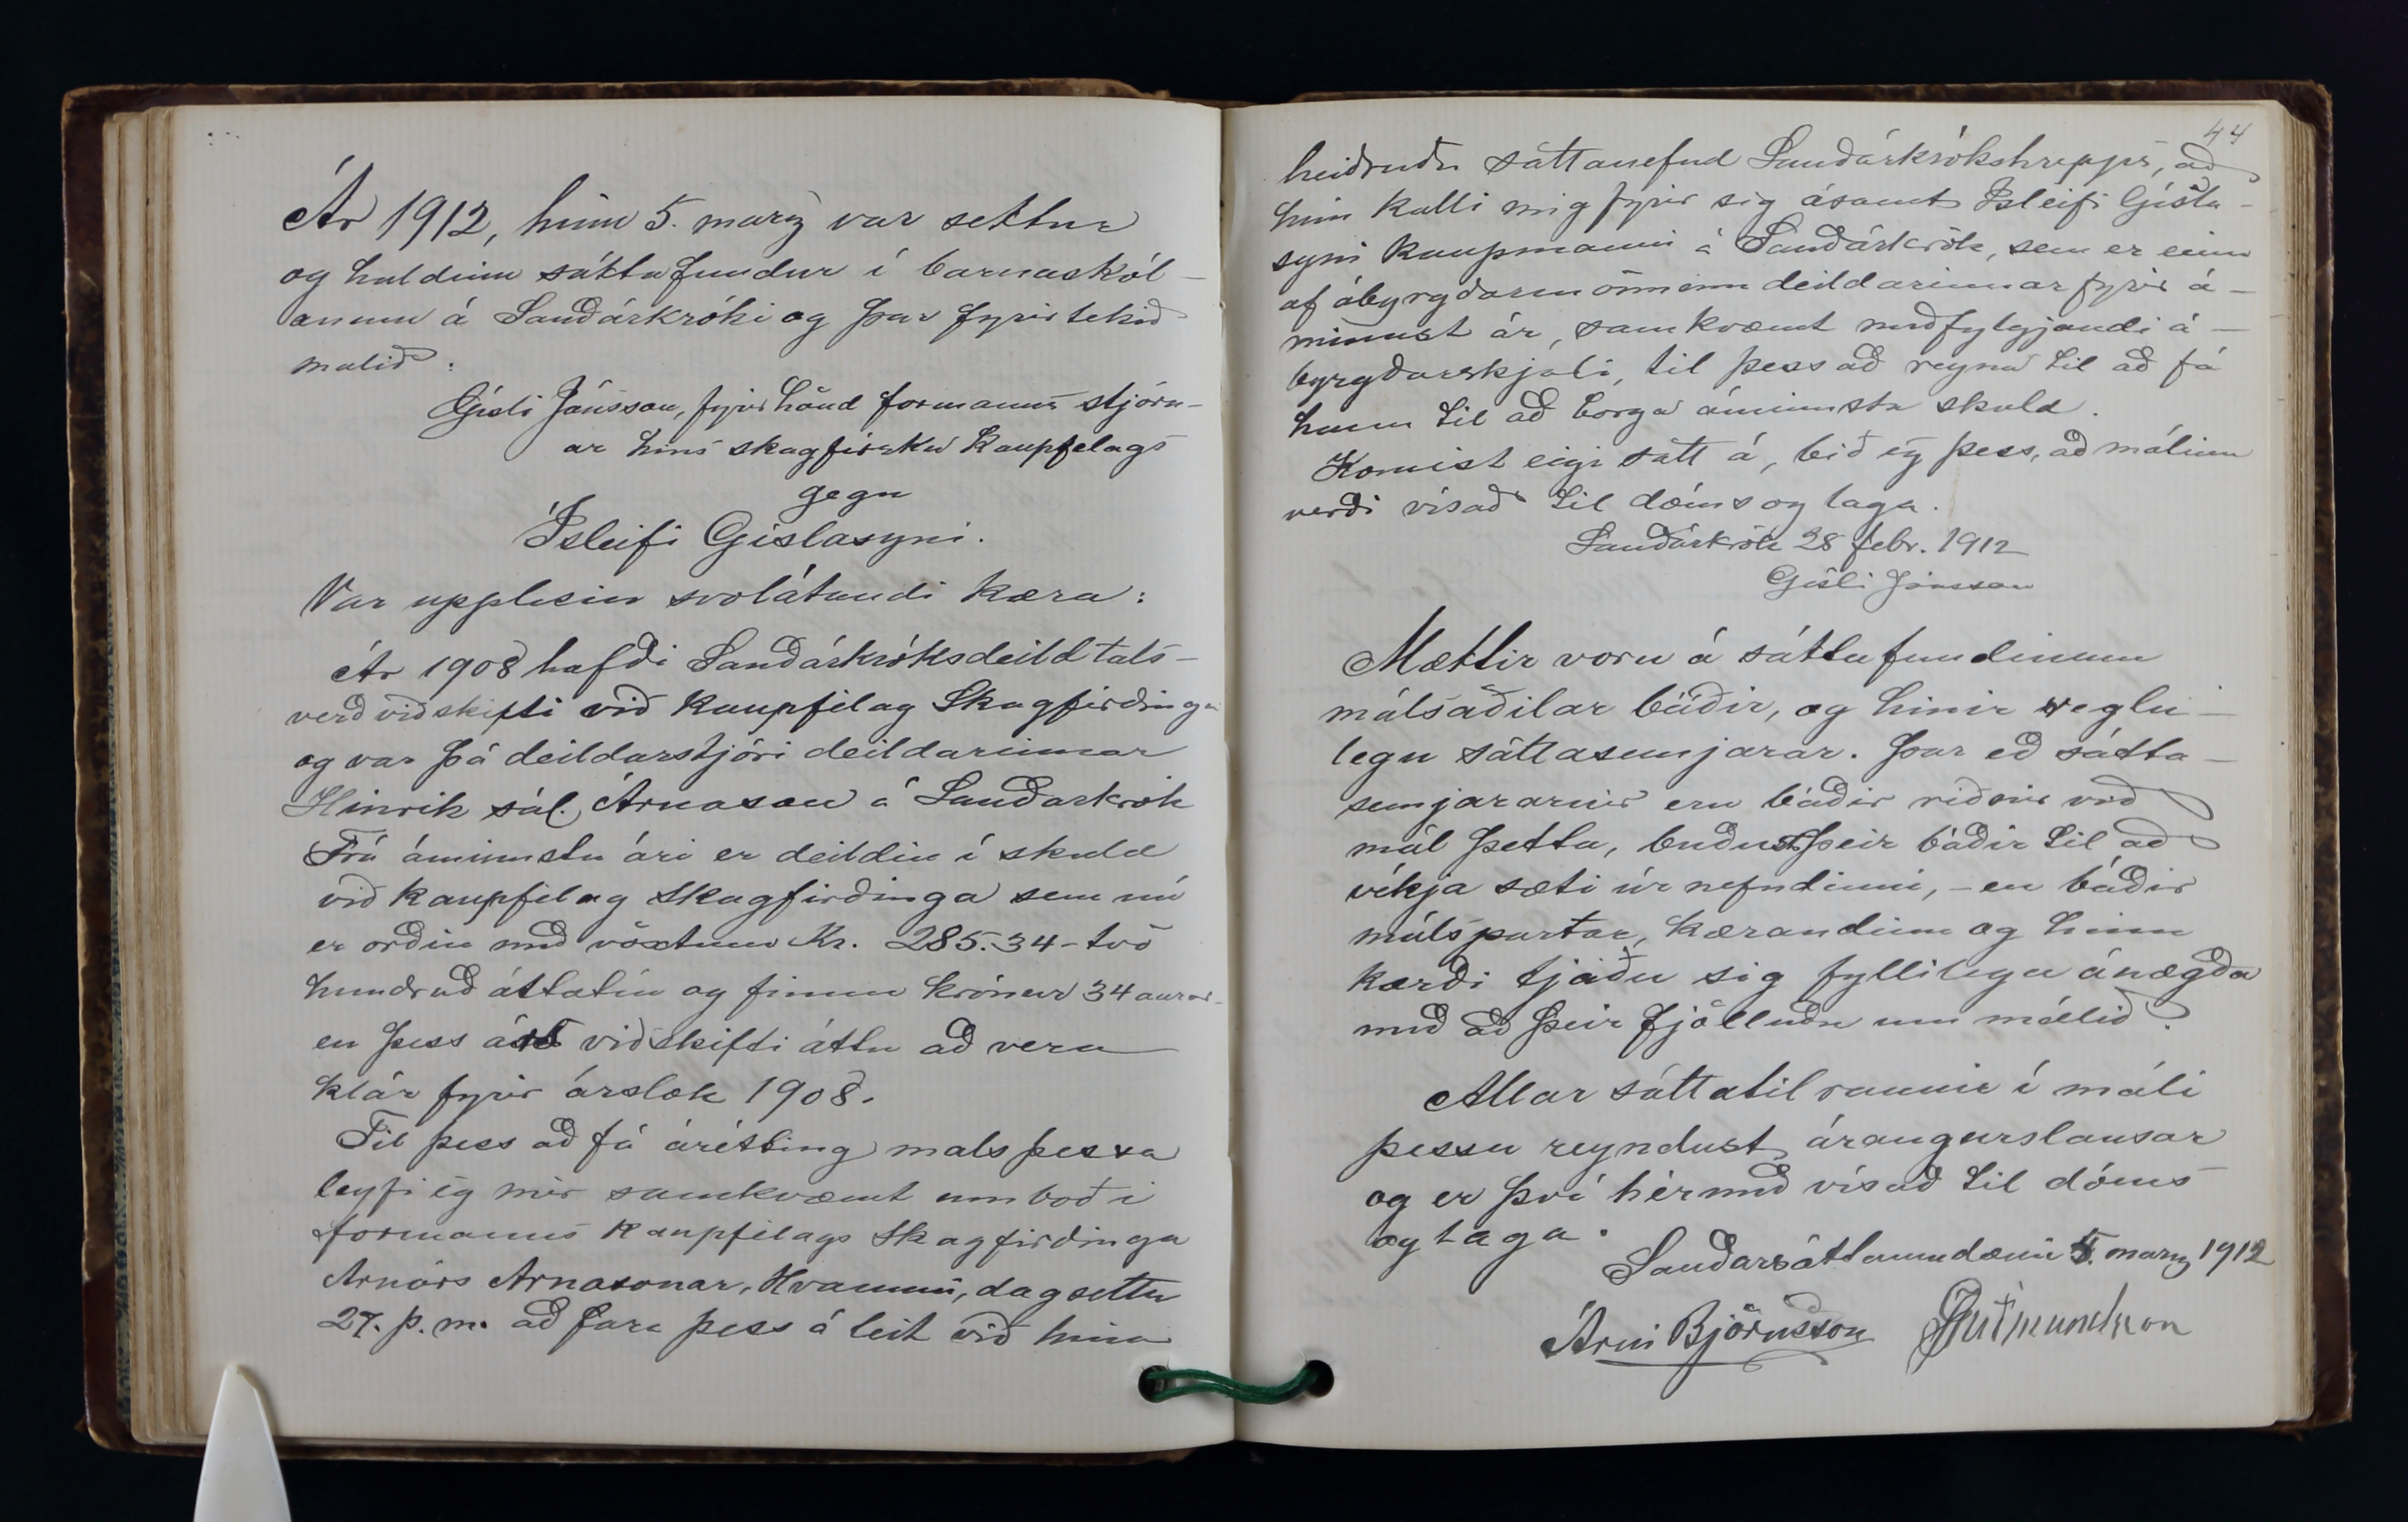 Ár 1912, hinn 5. marz var settur
og haldinn sáttafundur í barnaskól-
anum á Sauðárkróki og þar fyrirtekið
malið:
Gísli Jónsson, fyrir hönd formanns stjórn-
ar hins skagfirzka Kaupfelags
gegn
Ísleifi Gíslasyni.
Var upplesin svolátandi kæra:
Ár 1908 hafði Sauðárkróksdeild tals-
verð viðskifti við Kaupfélag Skagfirðinga
og var þá deildarstjóri deildarinnar
Hinrik sál. Árnason á Sauðarkrók
Frá áminnstu ári er deildin í skuld
við Kaupfélag Skagfirðinga sem nú
er orðin með vöxtum Kr. 285.34 - tvö
hundruð áttatíu og fimm krónur 34 aurar-
en þess árs viðskifti áttu að vera
klár fyrir árslok 1908.
Til þess að fá árétting mals þessa
leyfi eg mér samkvæmt umboði
formanns Kaupfélags Skagfirðinga
Arnórs Arnasonar, Hvammi, dagsettu
27. þ. m. að fara þess á leit við hina
44
heiðruðu sáttanefnd Sauðárkrókshrepps, að
hún kalli mig fyrir sig ásamt Ísleifi Gísla-
syni kaupmanni á Sauðárkrók, sem er einn
af ábyrgðarmönnum deildarinnar fyrir á-
minnst ár, samkvæmt meðfylgjandi á-
byrgðarskjali, til þess að reyna til að fá
hann til að borga áminnsta skuld.
Komist eigi sátt á, bið eg þess, að málinu
verði vísað til dóms og laga.
Sauðárkrók 28 febr. 1912
Gísli Jónsson
Mættir voru á sáttafundinum
málsaðilar báðir, og hinir reglu-
legu sáttasemjarar. Þar eð sátta-
semjararnir eru báðir riðnir við
mál þetta, buðust þeir báðir til að
víkja sæti úr nefndinni, - en báðir
málspartar, kærandinn og hinn
kærði tjáðu sig fyllilega ánægða
með að þeir fjölluðu um málið.
Allar sáttatilraunir í máli
þessu reyndust árangurslausar
og er því hérmeð vísað til dóms
og laga.
Sauðarsáttaumdæmi 5. marz 1912
Árni Björnsson